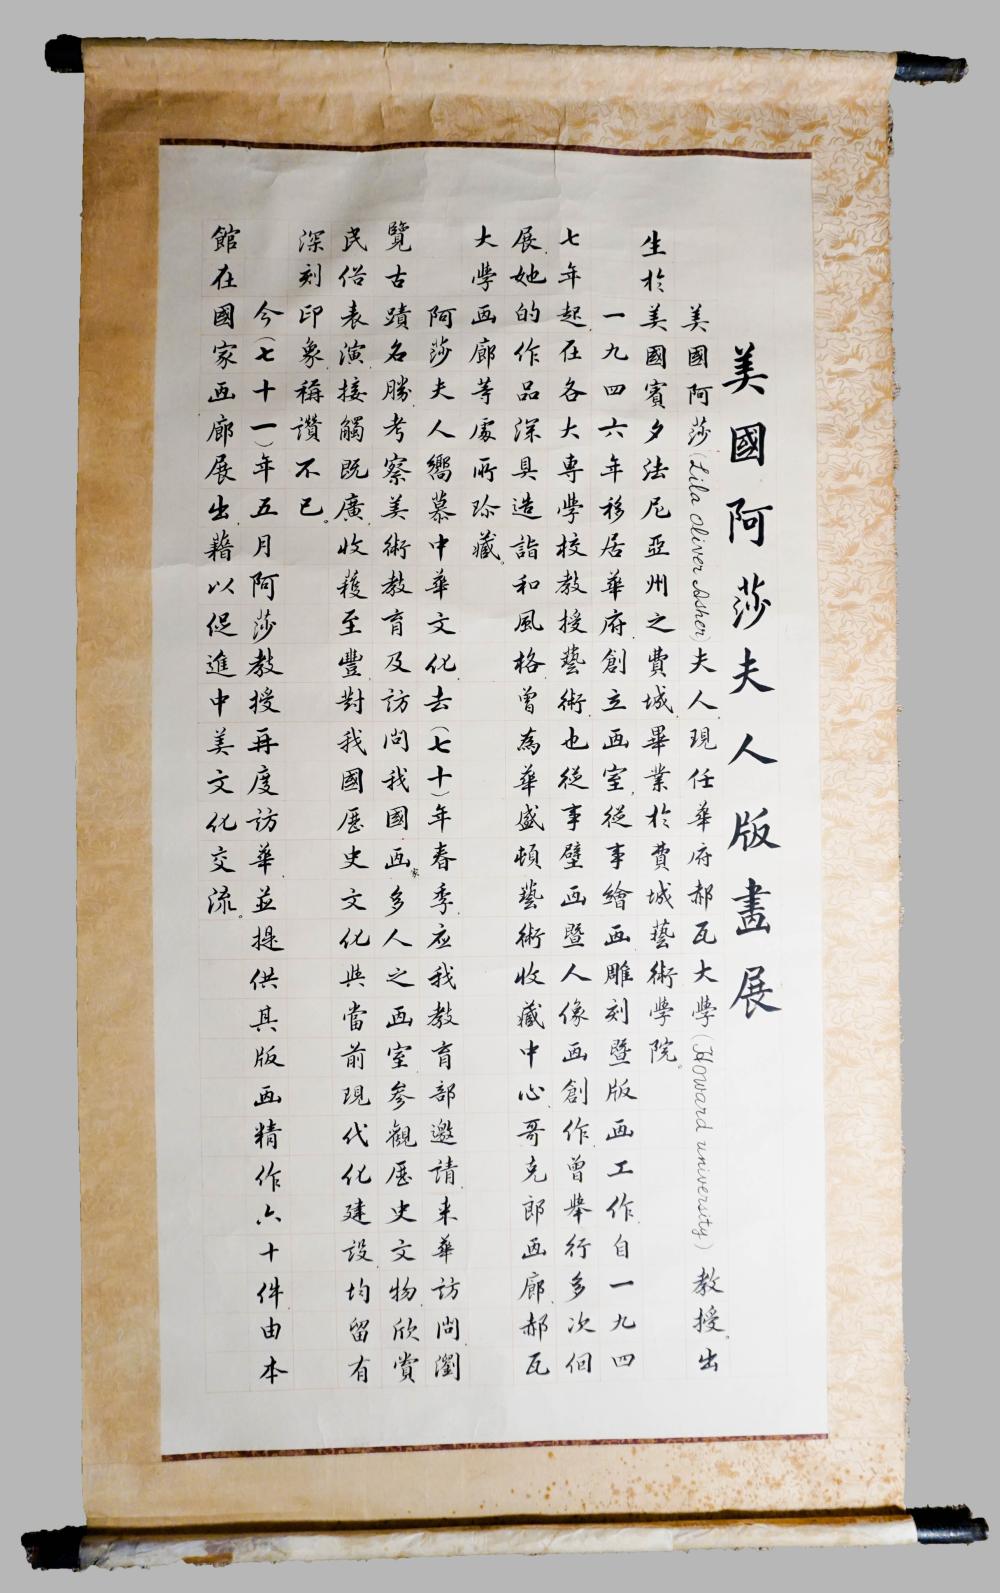 美國阿莎夫人版畫展
美國阿莎(Lila Oliver Asher)夫人現任華府郝瓦大學(Howard university)教授。出
生於美國賓夕法尼亞州之費城畢業於費城藝術學院。
一九四六年移居華府創立画室從事繪画雕刻暨版画工作自一九四
七年起在各大專學校教授藝術也從事壁画暨人像画創作曾舉行多次個
展她的作品深具造詣和風格曾為華盛頓藝術收藏中心哥克郎画廊郝瓦
大學画廊等處所珍藏。
阿莎夫人嚮慕中華文化去(七十)年春季應我教育部邀請来華訪問瀏
覽古蹟名勝考察美術教育及訪問我國画家多人之画室參觀歷史文物欣賞
民俗表演接觸既廣收穫至豐對我國歷史文化與當前現代化建設均留有
深刻印象稱讚不已。
今(七十一)年五月阿莎教授再度訪華並提供其版画精作六十件由本
館在國家画廊展出藉以促進中美文化交流。